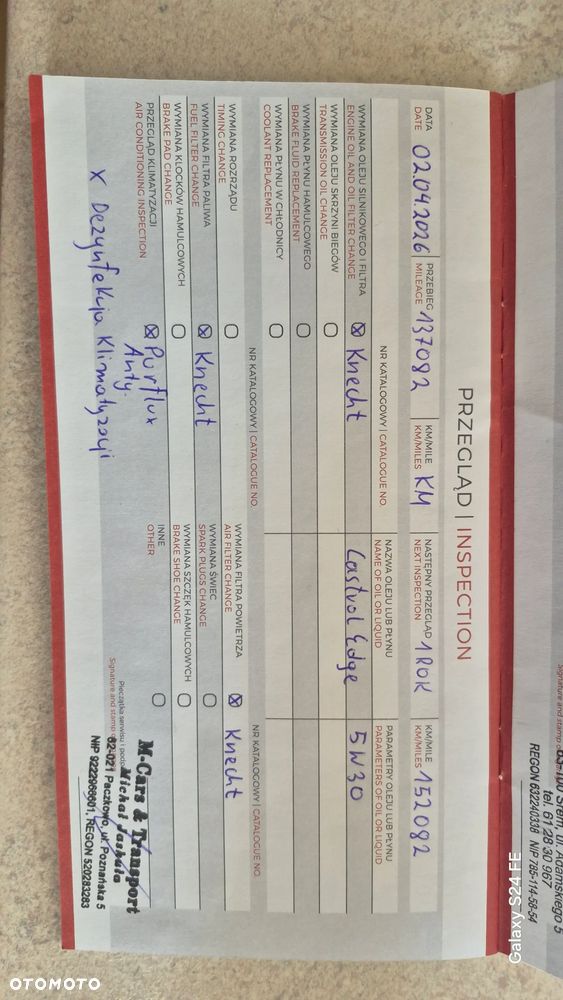 PRZEGLĄD | INSPECTION
DATA
DATE
02.04.2026
PRZEBIEG
MILEAGE
137082
KM/MILE
KM/MILES
KM
NASTĘPNY PRZEGLĄD
NEXT INSPECTION
1 ROK
KM/MILE
KM/MILES
152082
NR KATALOGOWY | CATALOGUE NO.
NAZWA OLEJU LUB PŁYNU
NAME OF OIL OR LIQUID
PARAMETRY OLEJU LUB PŁYNU
PARAMETERS OF OIL OR LIQUID
WYMIANA OLEJU SILNIKOWEGO I FILTRA
ENGINE OIL AND OIL FILTER CHANGE
Knecht
Castrol Edge
5W30
WYMIANA OLEJU SKRZYNI BIEGÓW
TRANSMISSION OIL CHANGE
WYMIANA PŁYNU HAMULCOWEGO
BRAKE FLUID REPLACEMENT
WYMIANA PŁYNU W CHŁODNICY
COOLANT REPLACEMENT
NR KATALOGOWY | CATALOGUE NO.
NR KATALOGOWY | CATALOGUE NO.
WYMIANA ROZRZĄDU
TIMING CHANGE
WYMIANA FILTRA POWIETRZA
AIR FILTER CHANGE
Knecht
WYMIANA FILTRA PALIWA
FUEL FILTER CHANGE
Knecht
WYMIANA ŚWIEC
SPARK PLUGS CHANGE
WYMIANA KLOCKÓW HAMULCOWYCH
BRAKE PAD CHANGE
WYMIANA SZCZĘK HAMULCOWYCH
BRAKE SHOE CHANGE
PRZEGLĄD KLIMATYZACJI
AIR CONDITIONING INSPECTION
Purflux
Anty.
INNE
OTHER
x Dezynfekcja Klimatyzacji
Pieczątka serwisu i podpis
Signature and stamp
M-Cars & Transport
Michał Jaskuła
62-021 Paczkowo, ul. Poznańska 5
NIP 9222966601, REGON 520283283
Signature and stamp
63-100 Śrem, ul. Adamskiego 5
tel. 61 28 30 967
REGON 632240338 NIP 785-114-58-54
Galaxy S24 FE
OTOMOTO